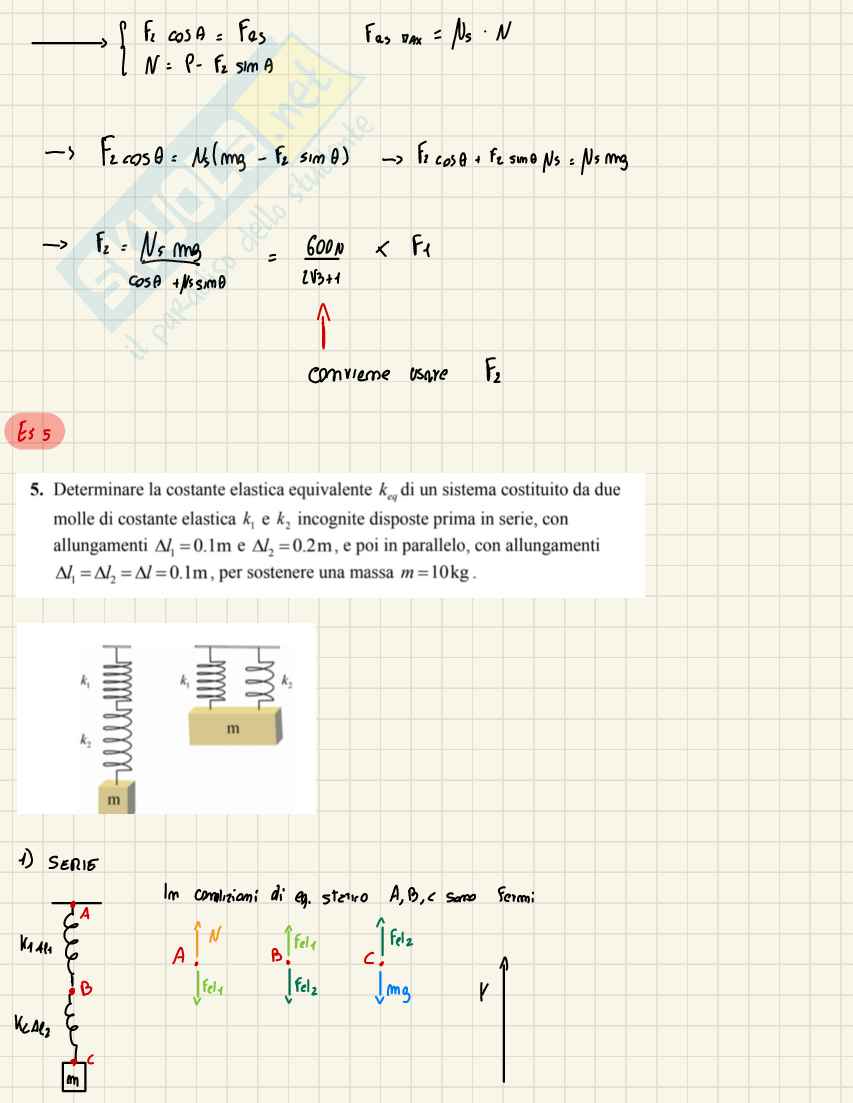 F₂ cosθ = Fas Fas MAX = μs · N
N = P - F₂ sinθ
→ F₂ cosθ = μs(mg - F₂ sinθ) → F₂ cosθ + F₂ sinθ μs = μs mg
→ F₂ = μs mg / cosθ + μs sinθ = 600N / 2√3+1 < F1
conviene usare F₂
SKUOLA.net
il paradiso dello studente
Es 5
5. Determinare la costante elastica equivalente k_eq di un sistema costituito da due
molle di costante elastica k₁ e k₂ incognite disposte prima in serie, con
allungamenti Δl₁ = 0.1m e Δl₂ = 0.2m, e poi in parallelo, con allungamenti
Δl₁ = Δl₂ = Δl = 0.1m, per sostenere una massa m = 10kg.
k₁ k₁ k₂
k₂ m
m
1) SERIE
In condizioni di eq. statico A, B, C sono fermi
A
K1 Δl1
B
K2 Δl2
C
m
A N Fel1
B Fel1 Fel2
C Fel2 mg
Y